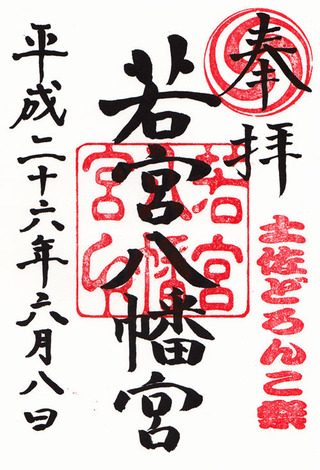 奉拝
土佐どろんこ祭
若宮八幡宮
若宮
八幡
宮印
平成二十六年六月八日